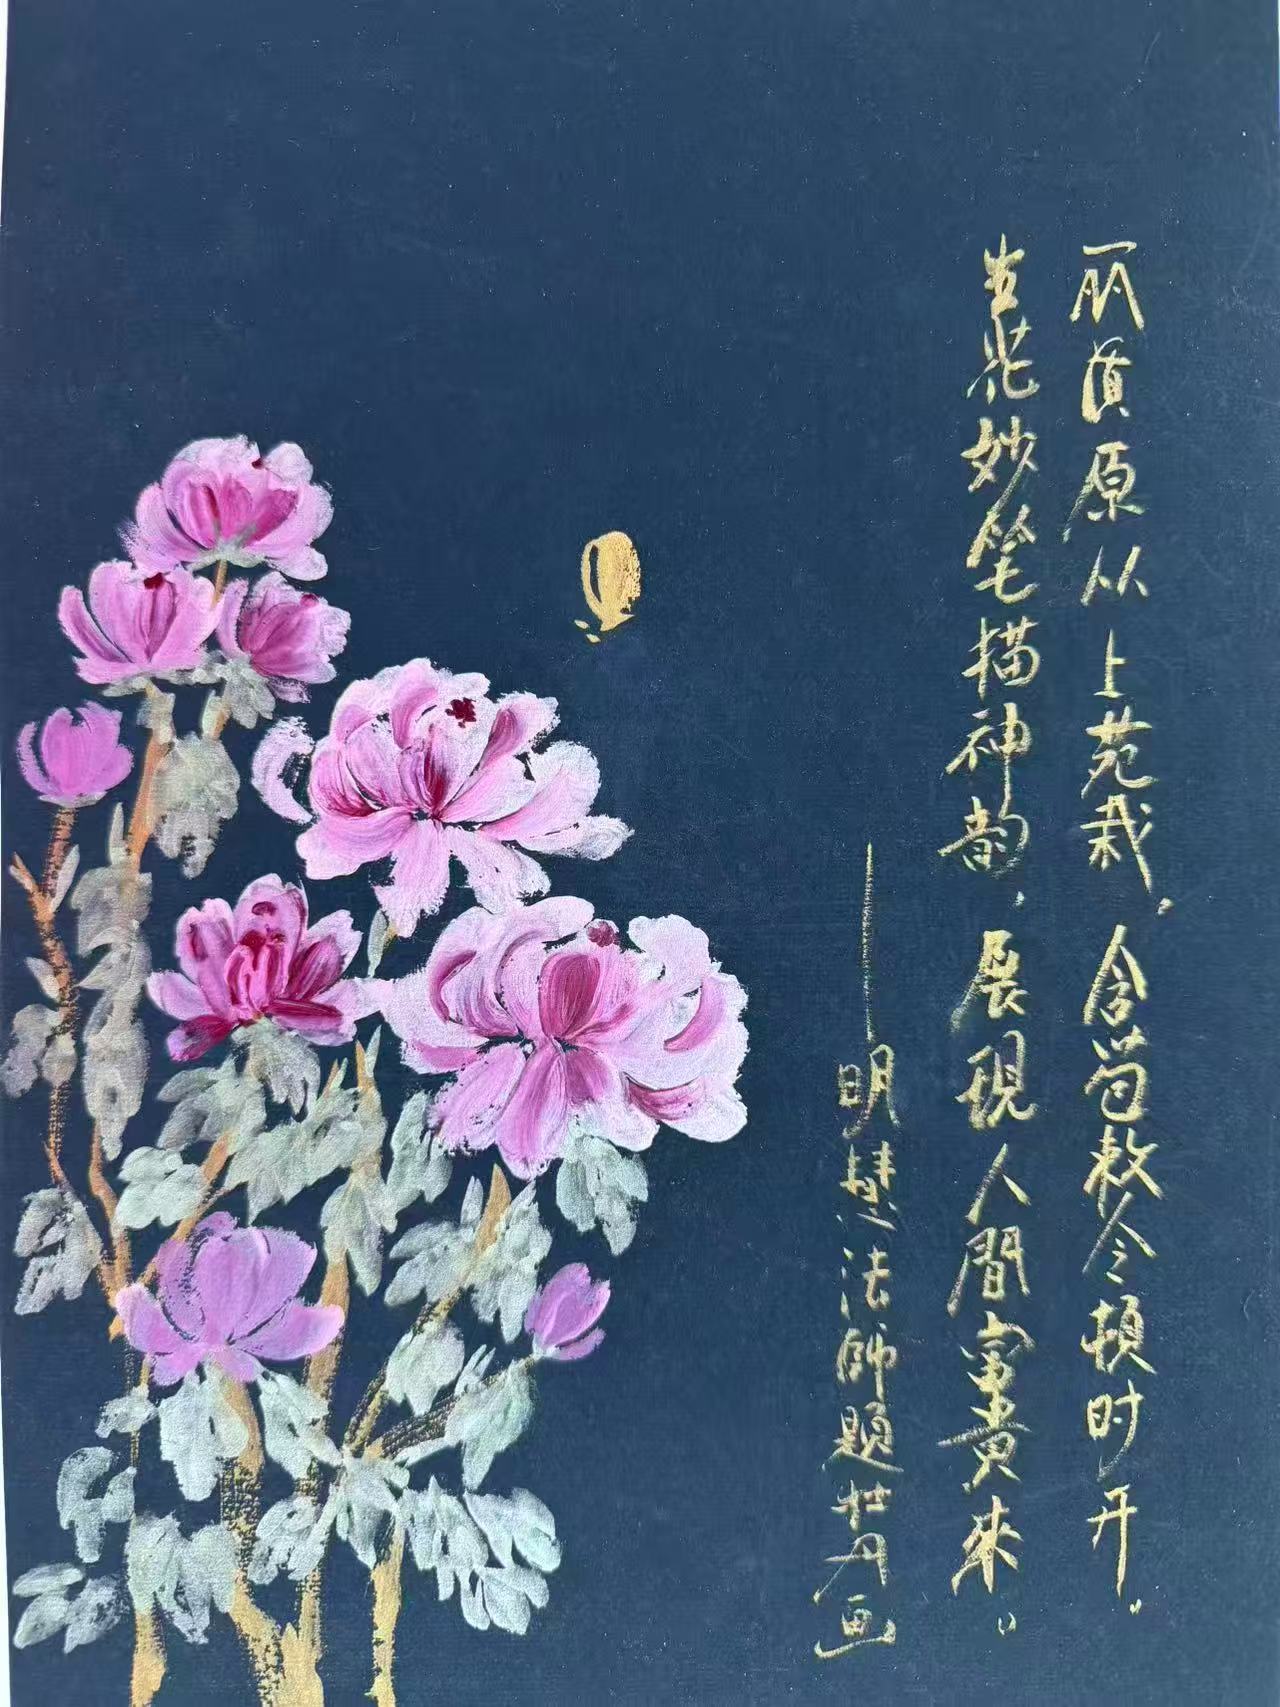 丽质原从上苑栽，含苞敕令顿时开。
生花妙笔描神韵，展现人间富贵来。
——明慧法師题牡丹画